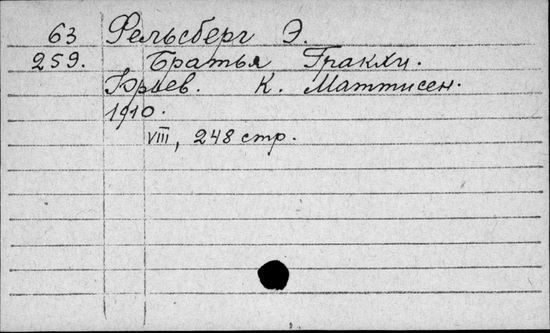 63 Фельсберг Э.
259. Братья Гракхи.
Юрьев. К. Маттисен.
1910.
VIII, 248 стр.